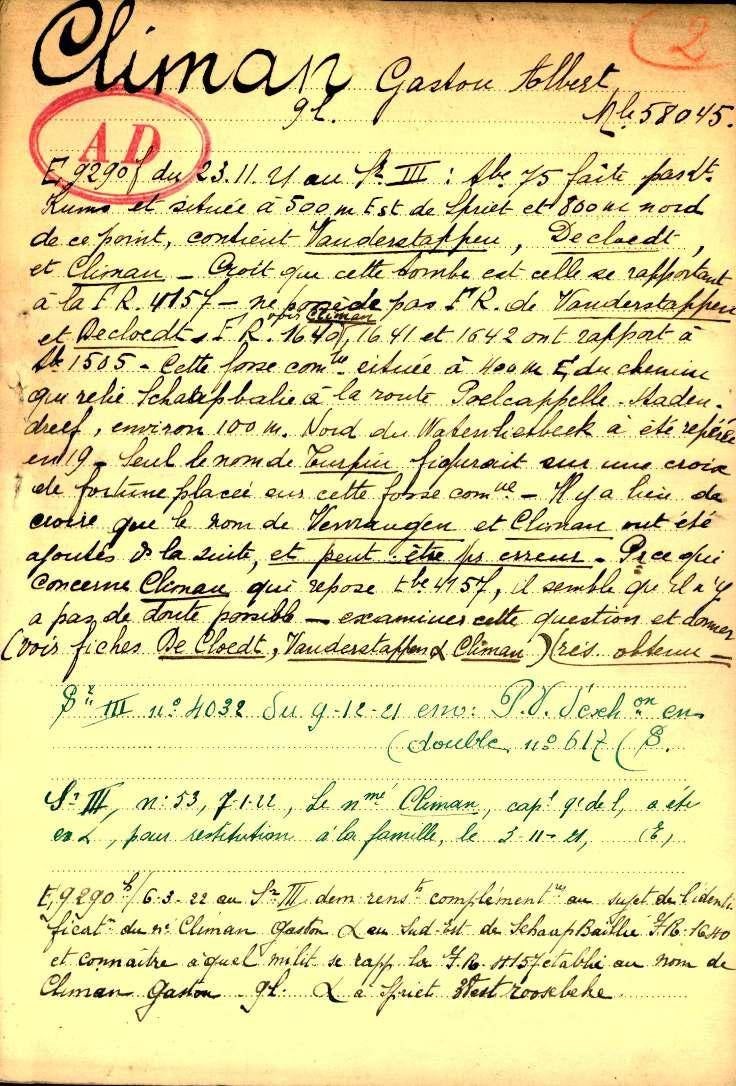 2
Climan Gaston Albert
9L. Mle 58045.
AD
E, 9290f du 23.11.21 au Sr III : tbe 75 faite par Lt
Kums et située à 500 m Est de Spriet et 800 m nord
de ce point, contient Vanderstappen, Decloedt,
et Climan _ Croit que cette tombe est celle se rapportant
à la F.R. 4157 _ ne possède pas F.R. de Vanderstappen
voir Climan
et Decloedt _ F.R. 1640, 1641 et 1642 ont rapport à
tbe 1505 - Cette fosse comne située à 400 m E, du chemin
qui relie Schaapbalie à la route Poelcappelle - Staden-
dreef, environ 100 m. Nord du Watervlietbeek a été repérée
en 19 - Seul le nom de Turpin figurait sur une croix
de fortune placée sur cette fosse comne - Il y a lieu de
croire que le nom de et Climan ont été
ajoutés ds la suite, et peut-être pr erreur - Pr ce qui
concerne Climan qui repose tbe 4157, il semble qu'il n'y
a pas de doute possible _ examiner cette question et donner
(voir fiches De Cloedt, Vanderstappen & Climan) (rés. obtenu _
Sr III no 4032 du 9-12-21 env: P.V. d'exhon en
(double no 617 (S.
Sr III, no 53, 7-1-22, Le nmé Climan, capl 9e de l, a été
ex , pour restitution à la famille, le 3-11-21, (E,
E, 9290 b/6-3-22 au Sr III dem rensts complémentres au sujet de l'identi
ficatn du né Climan Gaston au Sud-Est de Schaap Baillie F.R. 1640
et connaître à quel milit. se rapp la F.R. 4157 établie au nom de
Climan Gaston 9L. à Spriet West roosebeke.